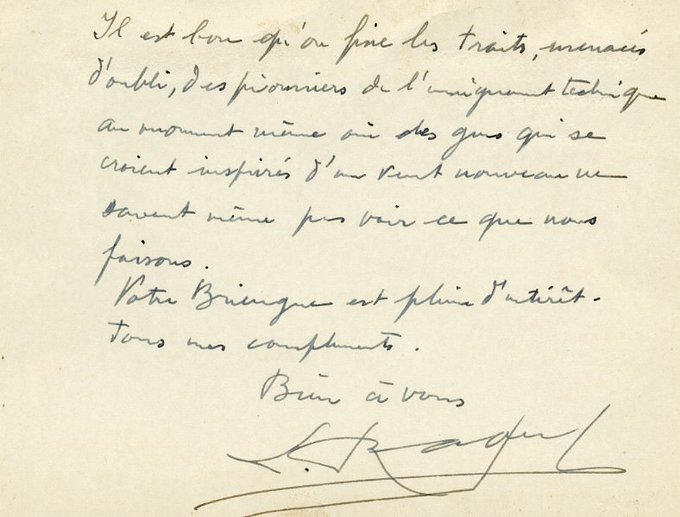 Il est bon qu'on fixe les traits, menacés
d'oubli, des pionniers de l'enseignement technique
au moment même où des gens qui se
croient inspirés d'un vent nouveau ne
savent même pas voir ce que nous
faisons.
Votre est plein d'intérêt.
Tous mes compliments.
Bien à vous